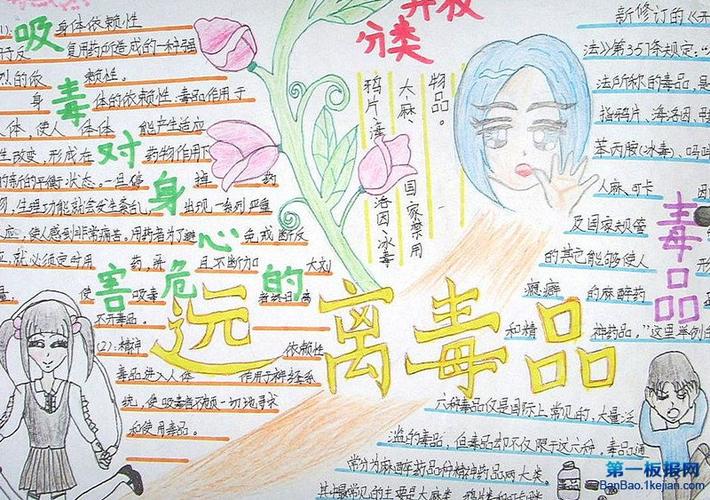 吸毒对身心的危害
(1):身体依赖性
复用药所造成的一种强
烈的依赖性。
身体的依赖性,毒品作用于
人体,使人体体能产生适应
性改变,形成在药物作用下
的新的平衡状态。一旦停掉药
物,生理功能就会发生紊乱,出现一系列严重
反应,使人感到非常痛苦。用药者为了避免戒断反
应,就必须定时用药,并且不断加大
量,使吸毒者终日离
不开毒品。
(2):精神依赖性
毒品进入人体作用于神经系
统,使吸毒者不顾一切地寻求
和使用毒品。
分类
物品。
大麻、国家禁用
鸦片、海洛因、冰毒
远离毒品
毒品
新修订的《开
法》第357条规定:“
法所称的毒品,是
指鸦片、海洛因、甲
苯丙胺(冰毒)、吗啡
人麻、可卡
及国家规管
的其它能够使人
瘾癖的麻醉药
和精神药品,”这里举例的
六种毒品仅是国际上常见的、大量泛
滥的毒品,但毒品却不仅限于这六种,毒品通
常分为麻醉药品和精神药品两大类,
其中最常见的主要是大麻类、鸦片类和可卡因
第一板报网
BanBao.1kejian.com